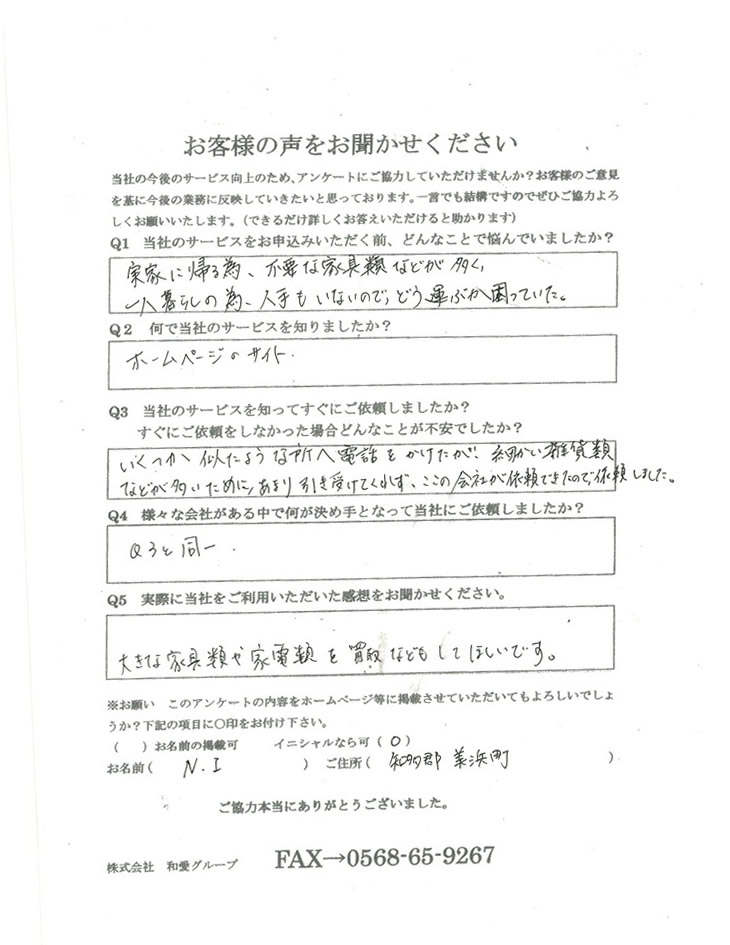 お客様の声をお聞かせください
当社の今後のサービス向上のため、アンケートにご協力していただけませんか?お客様のご意見
を基に今後の業務に反映していきたいと思っております。一言でも結構ですのでぜひご協力よろ
しくお願いいたします。(できるだけ詳しくお答えいただけると助かります)
Q1 当社のサービスをお申込みいただく前、どんなことで悩んでいましたか?
実家に帰る為、不要な家具類などが多く、
一人暮らしの為、人手もいないので、どう運ぶか困っていた。
Q2 何で当社のサービスを知りましたか?
ホームページのサイト.
Q3 当社のサービスを知ってすぐにご依頼しましたか?
すぐにご依頼をしなかった場合どんなことが不安でしたか?
いくつか似たような所へ電話をかけたが、細かい雑貨類
などが多いために、あまり引き受けてくれず、ここの会社が依頼できたので依頼しました。
Q4 様々な会社がある中で何が決め手となって当社にご依頼しましたか?
Q3と同一.
Q5 実際に当社をご利用いただいた感想をお聞かせください。
大きな家具類や家電類を買取などもしてほしいです。
※お願い このアンケートの内容をホームページ等に掲載させていただいてもよろしいでしょ
うか?下記の項目に〇印をお付け下さい。
( )お名前の掲載可 イニシャルなら可(O)
お名前( N.I ) ご住所( 知多郡 美浜町 )
ご協力本当にありがとうございました。
株式会社 和愛グループ FAX→0568-65-9267